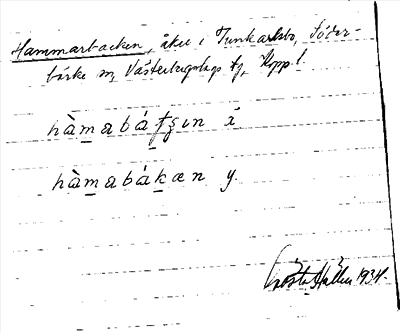 Hammarbacken, åker i Tunkarlsbo, Söder-
bärke sn, Västerbergslags fg, Kopp. l.
hàmabátʂɩn ä
hàmabákæn y.
Gösta Hallén 1934.